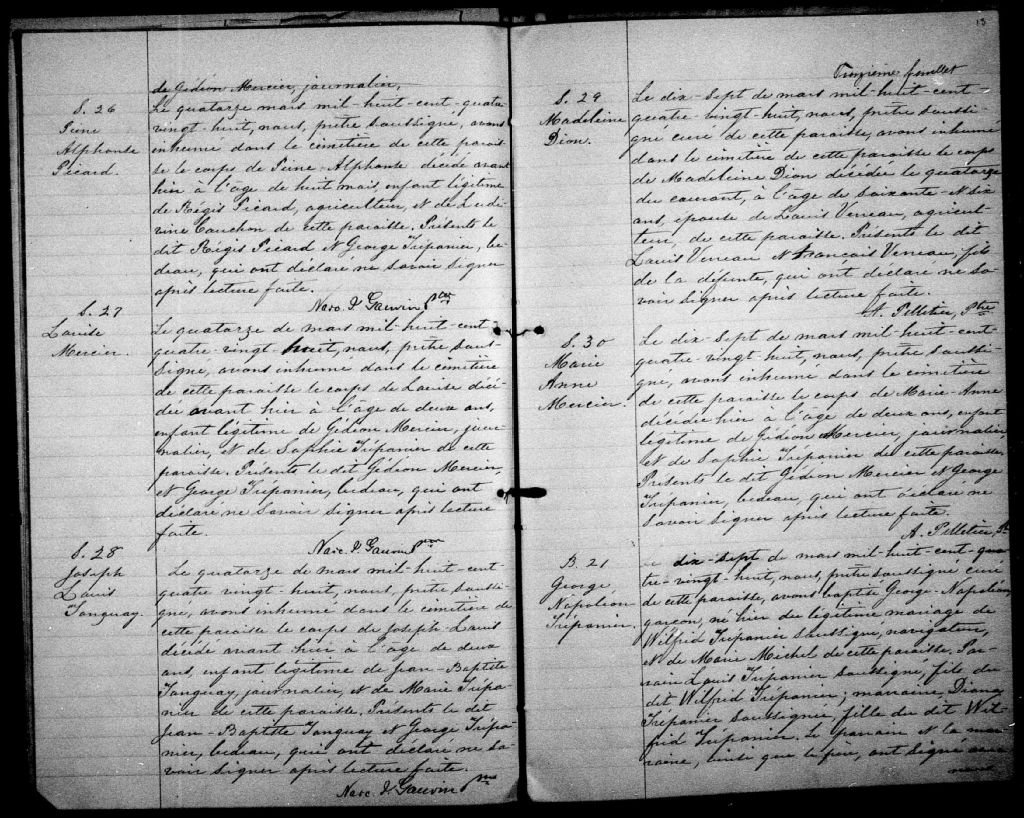 de Gédéon Mercier, journalier,
S. 26
Pierre
Alphonse
Picard.
Le quatorze mars mil-huit-cent-quatre-
vingt-huit, nous, prêtre soussigné, avons
inhumé dans le cimetière de cette parois-
se le corps de Pierre-Alphonse décédé avant
hier à l'âge de huit mois, enfant légitime
de Régis Picard, agriculteur, et de Ludi-
vine Couchon de cette paroisse. Présents le
dit Régis Picard et George Trépanier, be-
deau, qui ont déclaré ne savoir signer
après lecture faite.
Narc. J. Gauvin Ptre
S. 27
Louise
Mercier.
Le quatorze de mars mil-huit-cent-
quatre-vingt-huit, nous, prêtre sous-
signé, avons inhumé dans le cimetière
de cette paroisse le corps de Louise décé-
dée avant hier à l'âge de deux ans,
enfant légitime de Gédéon Mercier, jour-
nalier, et de Sophie Trépanier de cette
paroisse. Présents le dit Gédéon Mercier
et George Trépanier, bedeau, qui ont
déclaré ne savoir signer après lecture
faite.
Narc. J. Gauvin Ptre
S. 28
Joseph
Louis
Tanguay.
Le quatorze de mars mil-huit-cent-
quatre vingt-huit, nous, prêtre soussi-
gné, avons inhumé dans le cimetière de
cette paroisse le corps de Joseph-Louis
décédé avant hier à l'âge de deux
ans, enfant légitime de Jean-Baptiste
Tanguay, journalier, et de Marie Trépa-
nier de cette paroisse. Présents le dit
Jean-Baptiste Tanguay et George Trépa-
nier, bedeau, qui ont déclaré ne sa-
voir signer après lecture faite.
Narc. J. Gauvin Ptre
13
Treizième feuillet
S. 29
Madeleine
Dion.
Le dix-sept de mars mil-huit-cent-
quatre-vingt-huit, nous, prêtre soussi-
gné curé de cette paroisse, avons inhumé
dans le cimetière de cette paroisse le corps
de Madeleine Dion décédée le quatorze
du courant, à l'âge de soixante-et-six
ans, épouse de Louis Verreau, agricul-
teur, de cette paroisse. Présents le dit
Louis Verreau et Francois Verreau, fils
de la défunte, qui ont déclaré ne sa-
voir signer après lecture faite.
A. Pelletier, Ptre
S. 30
Marie
Anne
Mercier.
Le dix-sept de mars mil-huit-cent-
quatre-vingt-huit, nous, prêtre soussi-
gné, avons inhumé dans le cimetière
de cette paroisse le corps de Marie-Anne
décédée hier à l'âge de deux ans, enfant
légitime de Gédéon Mercier, journalier,
et de Sophie Trépanier de cette paroisse.
Présents le dit Gédéon Mercier et George
Trépanier, bedeau, qui ont déclaré ne
savoir signer après lecture faite.
A. Pelletier, Ptre
B. 21
George
Napoléon
Trépanier.
Le dix-sept de mars mil-huit-cent-qua-
tre-vingt-huit, nous, prêtre soussigné curé
de cette paroisse, avons baptisé George-Napoléon,
garçon, né hier du légitime mariage de
Wilfrid Trépanier soussigné, navigateur,
et de Marie Michel de cette paroisse. Par-
rain Louis Trépanier soussigné, fils du
dit Wilfrid Trépanier; marraine, Diana
Trépanier soussignée, fille du dit Wil-
frid Trépanier. Le parrain et la mar-
raine, ainsi que le père, ont signé avec
nous